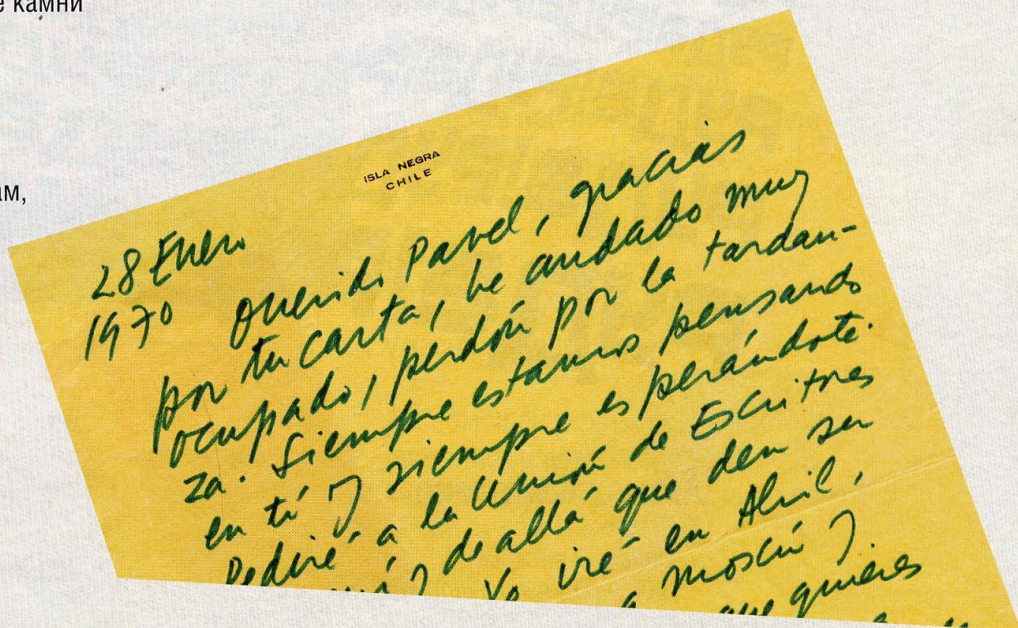 е камни
ам,
ISLA NEGRA
CHILE
28 Enero
1970
Querido Pavel, gracias
por tu carta, he andado muy
ocupado, perdón por la tardan-
za. Siempre estamos pensando
en tí y siempre esperándote.
Pediré a la Unión de Escritores
de allá que den su
Yo iré en Abril,
a Moscú y
que quieres